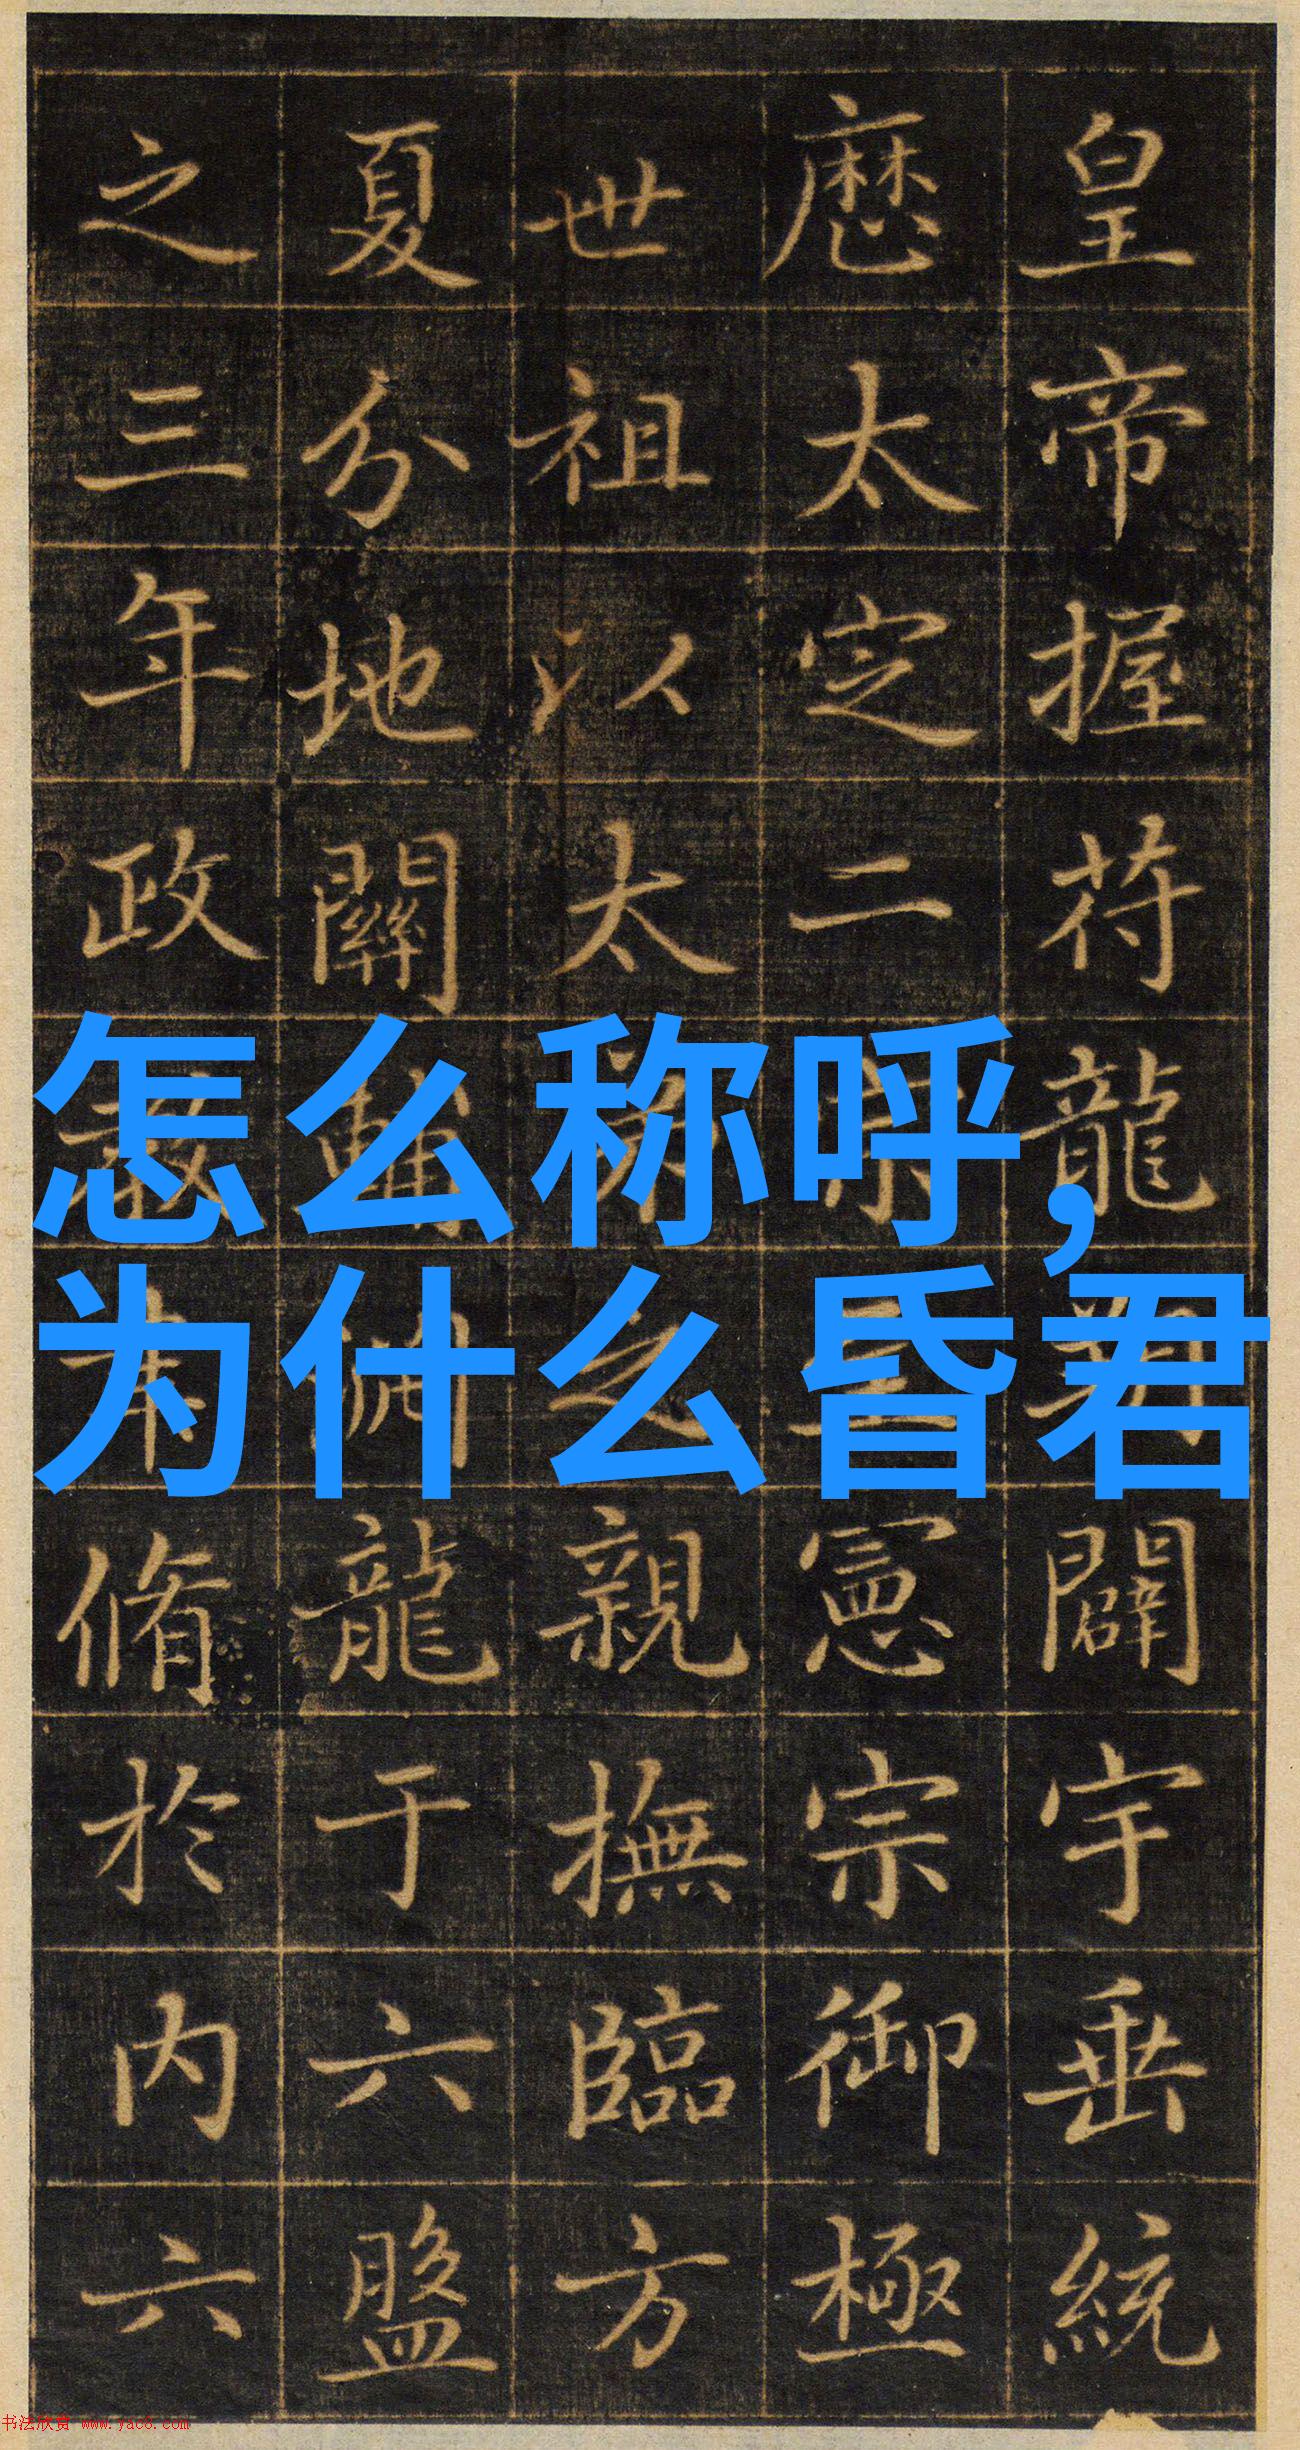 皇帝握符龍闢宇垂統
歷太定二宗憲宗御極
世祖以太弟之親撫臨方
夏分地關輔淵龍于六盤
之三年政教本脩於內六
怎么称呼,
为什么昏君
书法欣赏 www.yac8.com